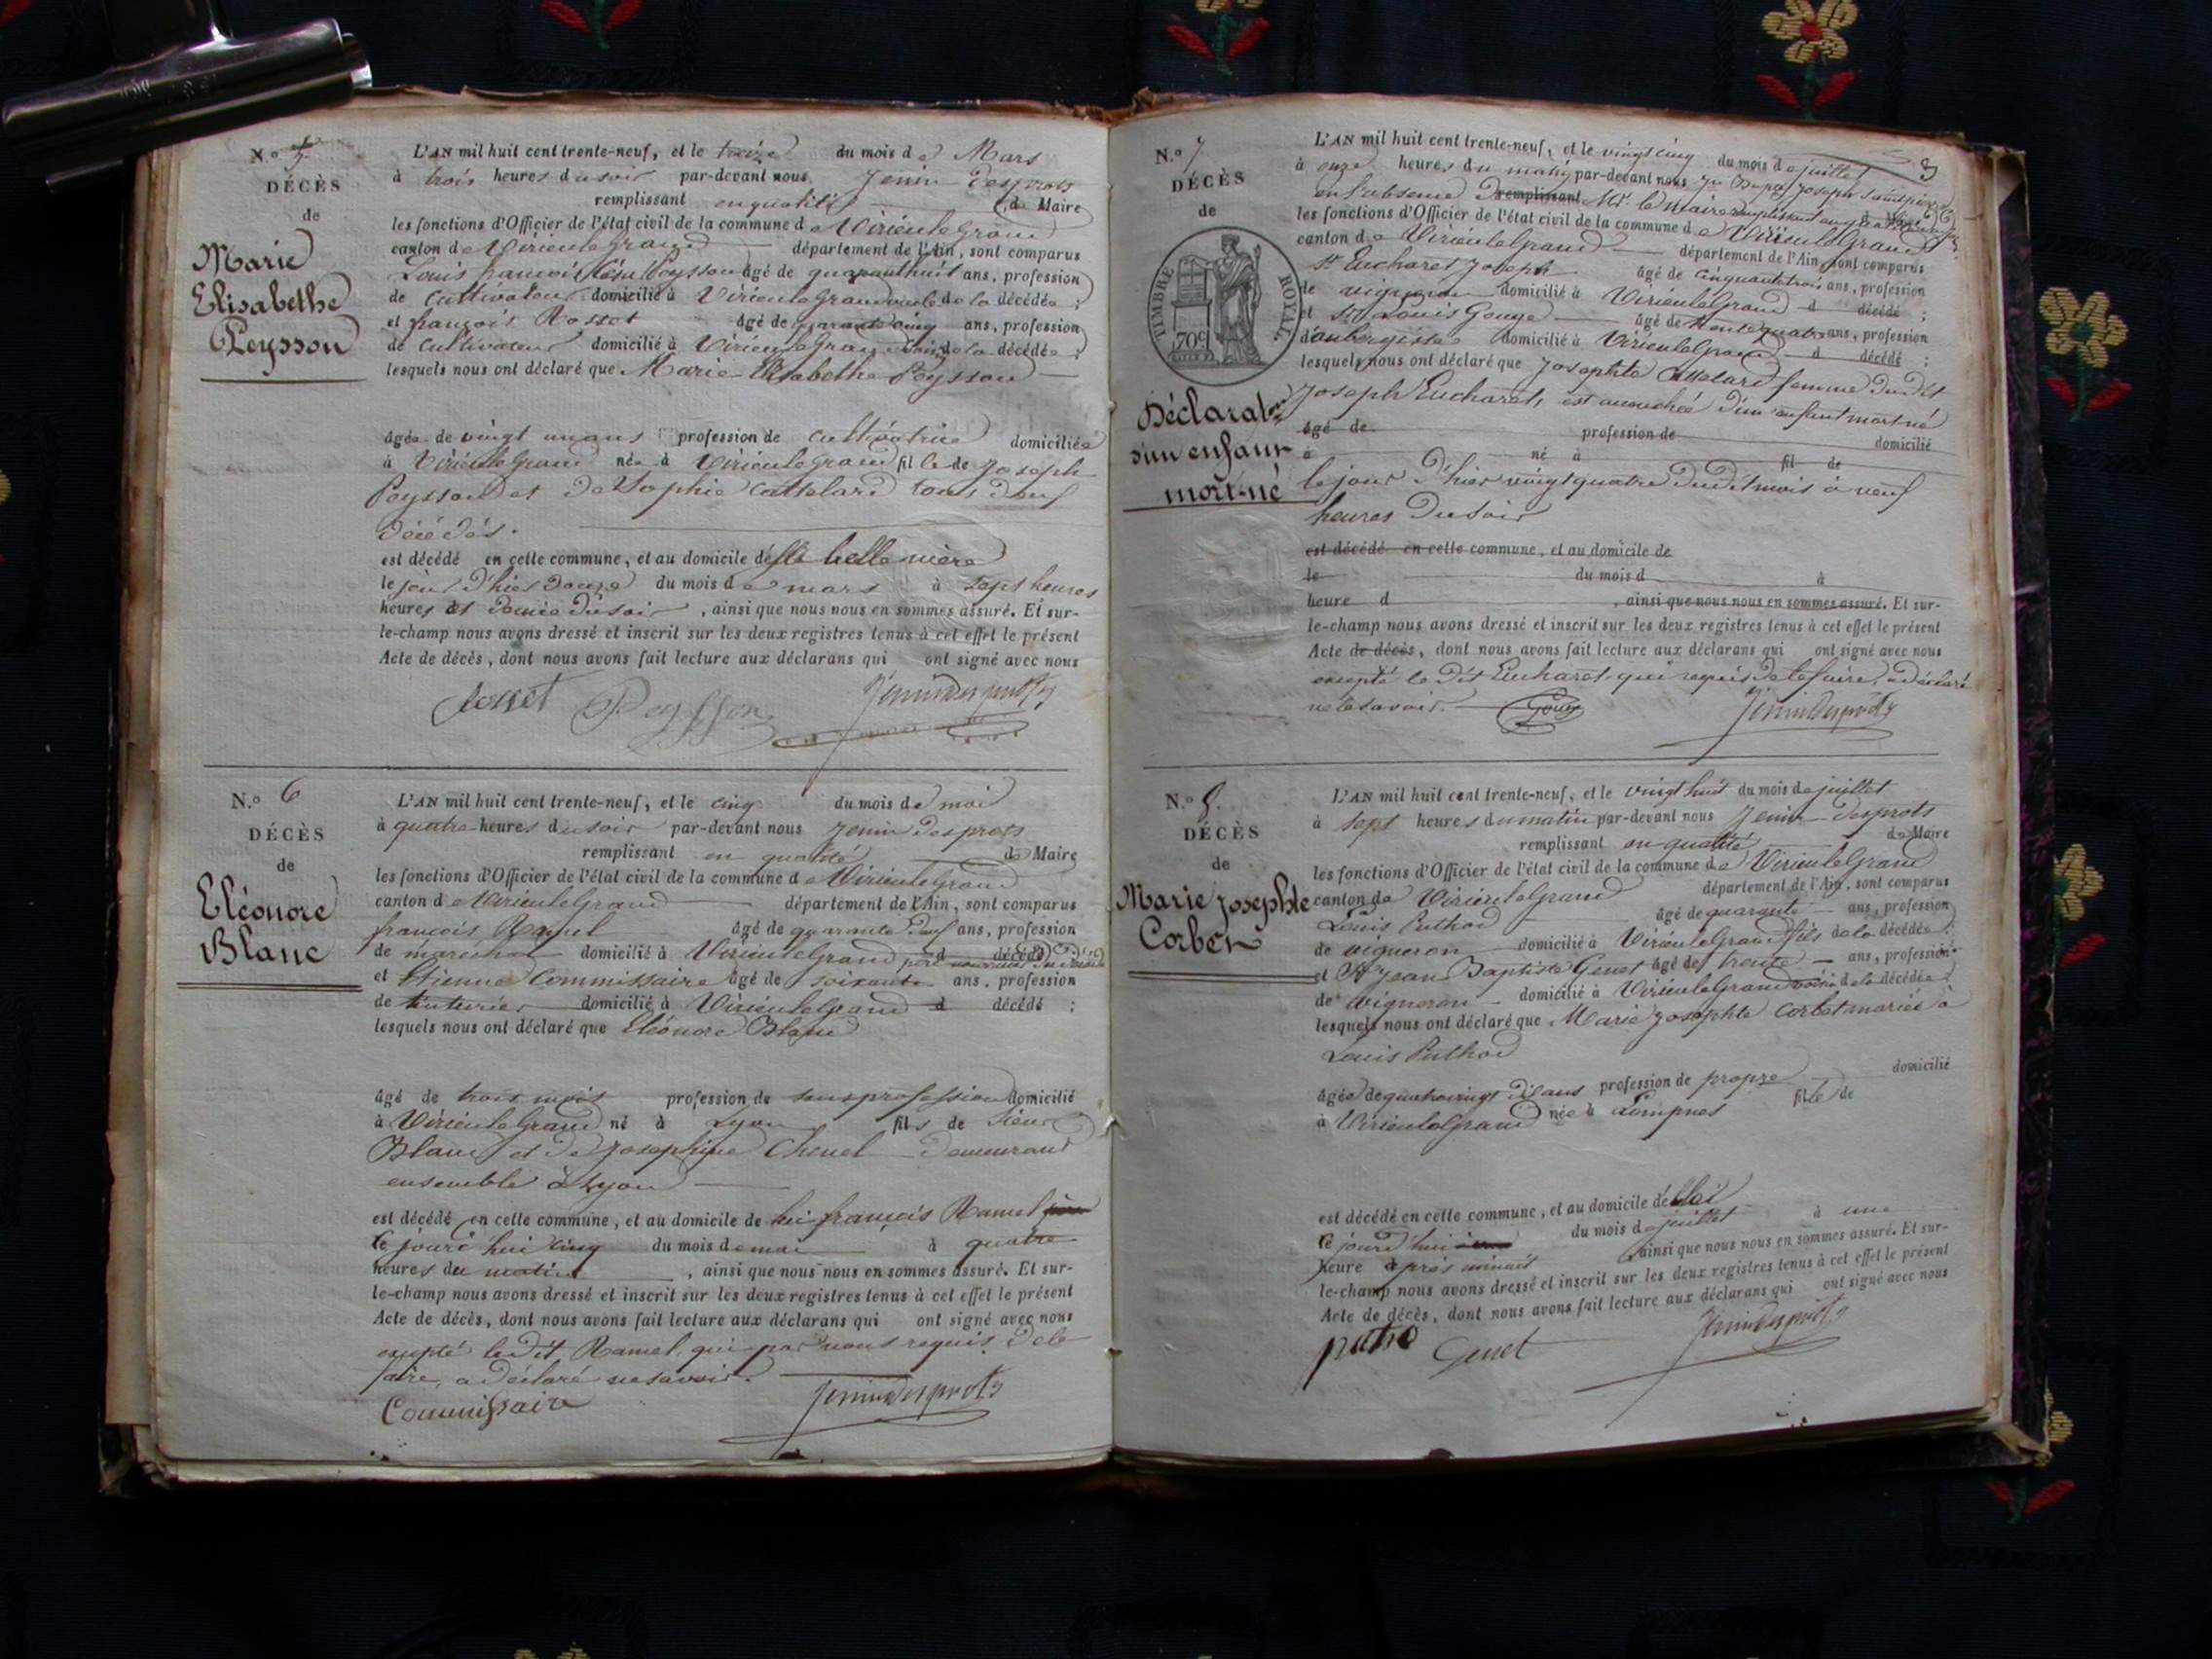 N.o 5.
DÉCÈS
de
Marie
Elisabethe
Peysson
L'AN mil huit cent trente-neuf, et le treize du mois de Mars
à trois heures du soir par-devant nous Jenin Desprots
remplissant en qualité de Maire
les fonctions d'Officier de l'état civil de la commune de Virieu le Grand
canton de Virieu le Grand département de l'Ain, sont comparus
Louis françois Peysson âgé de quarante huit ans, profession
de Cultivateur domicilié à Virieu le Grand oncle de la décédée ;
et françois Rosset âgé de quarante cinq ans, profession
de Cultivateur domicilié à Virieu le Grand voisin de la décédée ;
lesquels nous ont déclaré que Marie Elisabethe Peysson
âgée de vingt un ans profession de cultivatrice domiciliée
à Virieu le Grand née à Virieu le Grand fille de Joseph
Peysson et de Sophie Cattelard tous deux
décédés.
est décédé en cette commune, et au domicile de sa belle mère
le jour d'hier douze du mois de mars à sept heures
heures et demie du soir, ainsi que nous nous en sommes assuré. Et sur-
le-champ nous avons dressé et inscrit sur les deux registres tenus à cet effet le présent
Acte de décès, dont nous avons fait lecture aux déclarans qui ont signé avec nous
Rosset Peysson Jenin Desprots
N.o 6
DÉCÈS
de
Eléonore
Blanc
L'AN mil huit cent trente-neuf, et le cinq du mois de mai
à quatre heures du soir par-devant nous Jenin Desprots
remplissant en qualité de Maire
les fonctions d'Officier de l'état civil de la commune de Virieu le Grand
canton de Virieu le Grand département de l'Ain, sont comparus
françois Ramel âgé de quarante neuf ans, profession
de maréchal domicilié à Virieu le Grand d décédé père nourricier du décédé
et Etienne Commissaire âgé de soixante ans, profession
de teinturier domicilié à Virieu le Grand d décédé ;
lesquels nous ont déclaré que Eléonore Blanc
âgé de trois mois profession de sans profession domicilié
à Virieu le Grand né à Lyon fils de Sieur
Blanc et de Josephine Chenel demeurant
ensemble à Lyon
est décédé en cette commune, et au domicile de lui françois Ramel
le jourd'hui cinq du mois de mai à quatre
heures du matin, ainsi que nous nous en sommes assuré. Et sur-
le-champ nous avons dressé et inscrit sur les deux registres tenus à cet effet le présent
Acte de décès, dont nous avons fait lecture aux déclarans qui ont signé avec nous
excepté le dit Ramel, qui par nous requis de le
faire, a déclaré ne savoir.
Commissaire Jenin Desprots
3
N.o 7
DÉCÈS
de
TIMBRE ROYAL
70c
Déclarat.on
d'un enfant
mort-né
L'AN mil huit cent trente-neuf, et le vingt cinq du mois de juillet
à onze heures du matin par-devant nous Joseph
en l'absence de remplissant Mr. le maire remplissant
les fonctions d'Officier de l'état civil de la commune de Virieu le Grand
canton de Virieu le Grand département de l'Ain, sont comparus
Sr Eucharet Joseph âgé de cinquante trois ans, profession
de vigneron domicilié à Virieu le Grand d décédé ;
et Sr Louis Gouge âgé de trente quatre ans, profession
d'aubergiste domicilié à Virieu le Grand d décédé ;
lesquels nous ont déclaré que Josephte Cattelard femme du dit
Joseph Eucharet, est accouchée d'un enfant mort né
âgé de profession de domicilié
à né à fil de
le jour d'hier vingt quatre du dit mois à neuf
heures du soir
est décédé en cette commune, et au domicile de
le du mois d à
heure d , ainsi que nous nous en sommes assuré. Et sur-
le-champ nous avons dressé et inscrit sur les deux registres tenus à cet effet le présent
Acte de décès, dont nous avons fait lecture aux déclarans qui ont signé avec nous
excepté le dit Eucharet, qui requis de le faire, a déclaré
ne le savoir. Gouge Jenin Desprots
N.o 8.
DÉCÈS
de
Marie Josephte
Corbet
L'AN mil huit cent trente-neuf, et le vingt huit du mois de juillet
à sept heures du matin par-devant nous Jenin Desprots
remplissant en qualité de Maire
les fonctions d'Officier de l'état civil de la commune de Virieu le Grand
canton de Virieu le Grand département de l'Ain, sont comparus
Louis Puthod âgé de quarante ans, profession
de vigneron domicilié à Virieu le Grand fils de la décédée ;
et Sr Jean Baptiste Genet âgé de trente ans, profession
de vigneron domicilié à Virieu le Grand voisin de la décédée ;
lesquels nous ont déclaré que Marie Josephte Corbet mariée à
Louis Puthod
âgée de quatre vingt dix ans profession de propre domicilié
à Virieu le Grand née à Lompnes fille de
est décédé en cette commune, et au domicile de
le jourd'hui du mois de juillet à une
heure après minuit ainsi que nous nous en sommes assuré. Et sur-
le-champ nous avons dressé et inscrit sur les deux registres tenus à cet effet le présent
Acte de décès, dont nous avons fait lecture aux déclarans qui ont signé avec nous
Genet Jenin Desprots